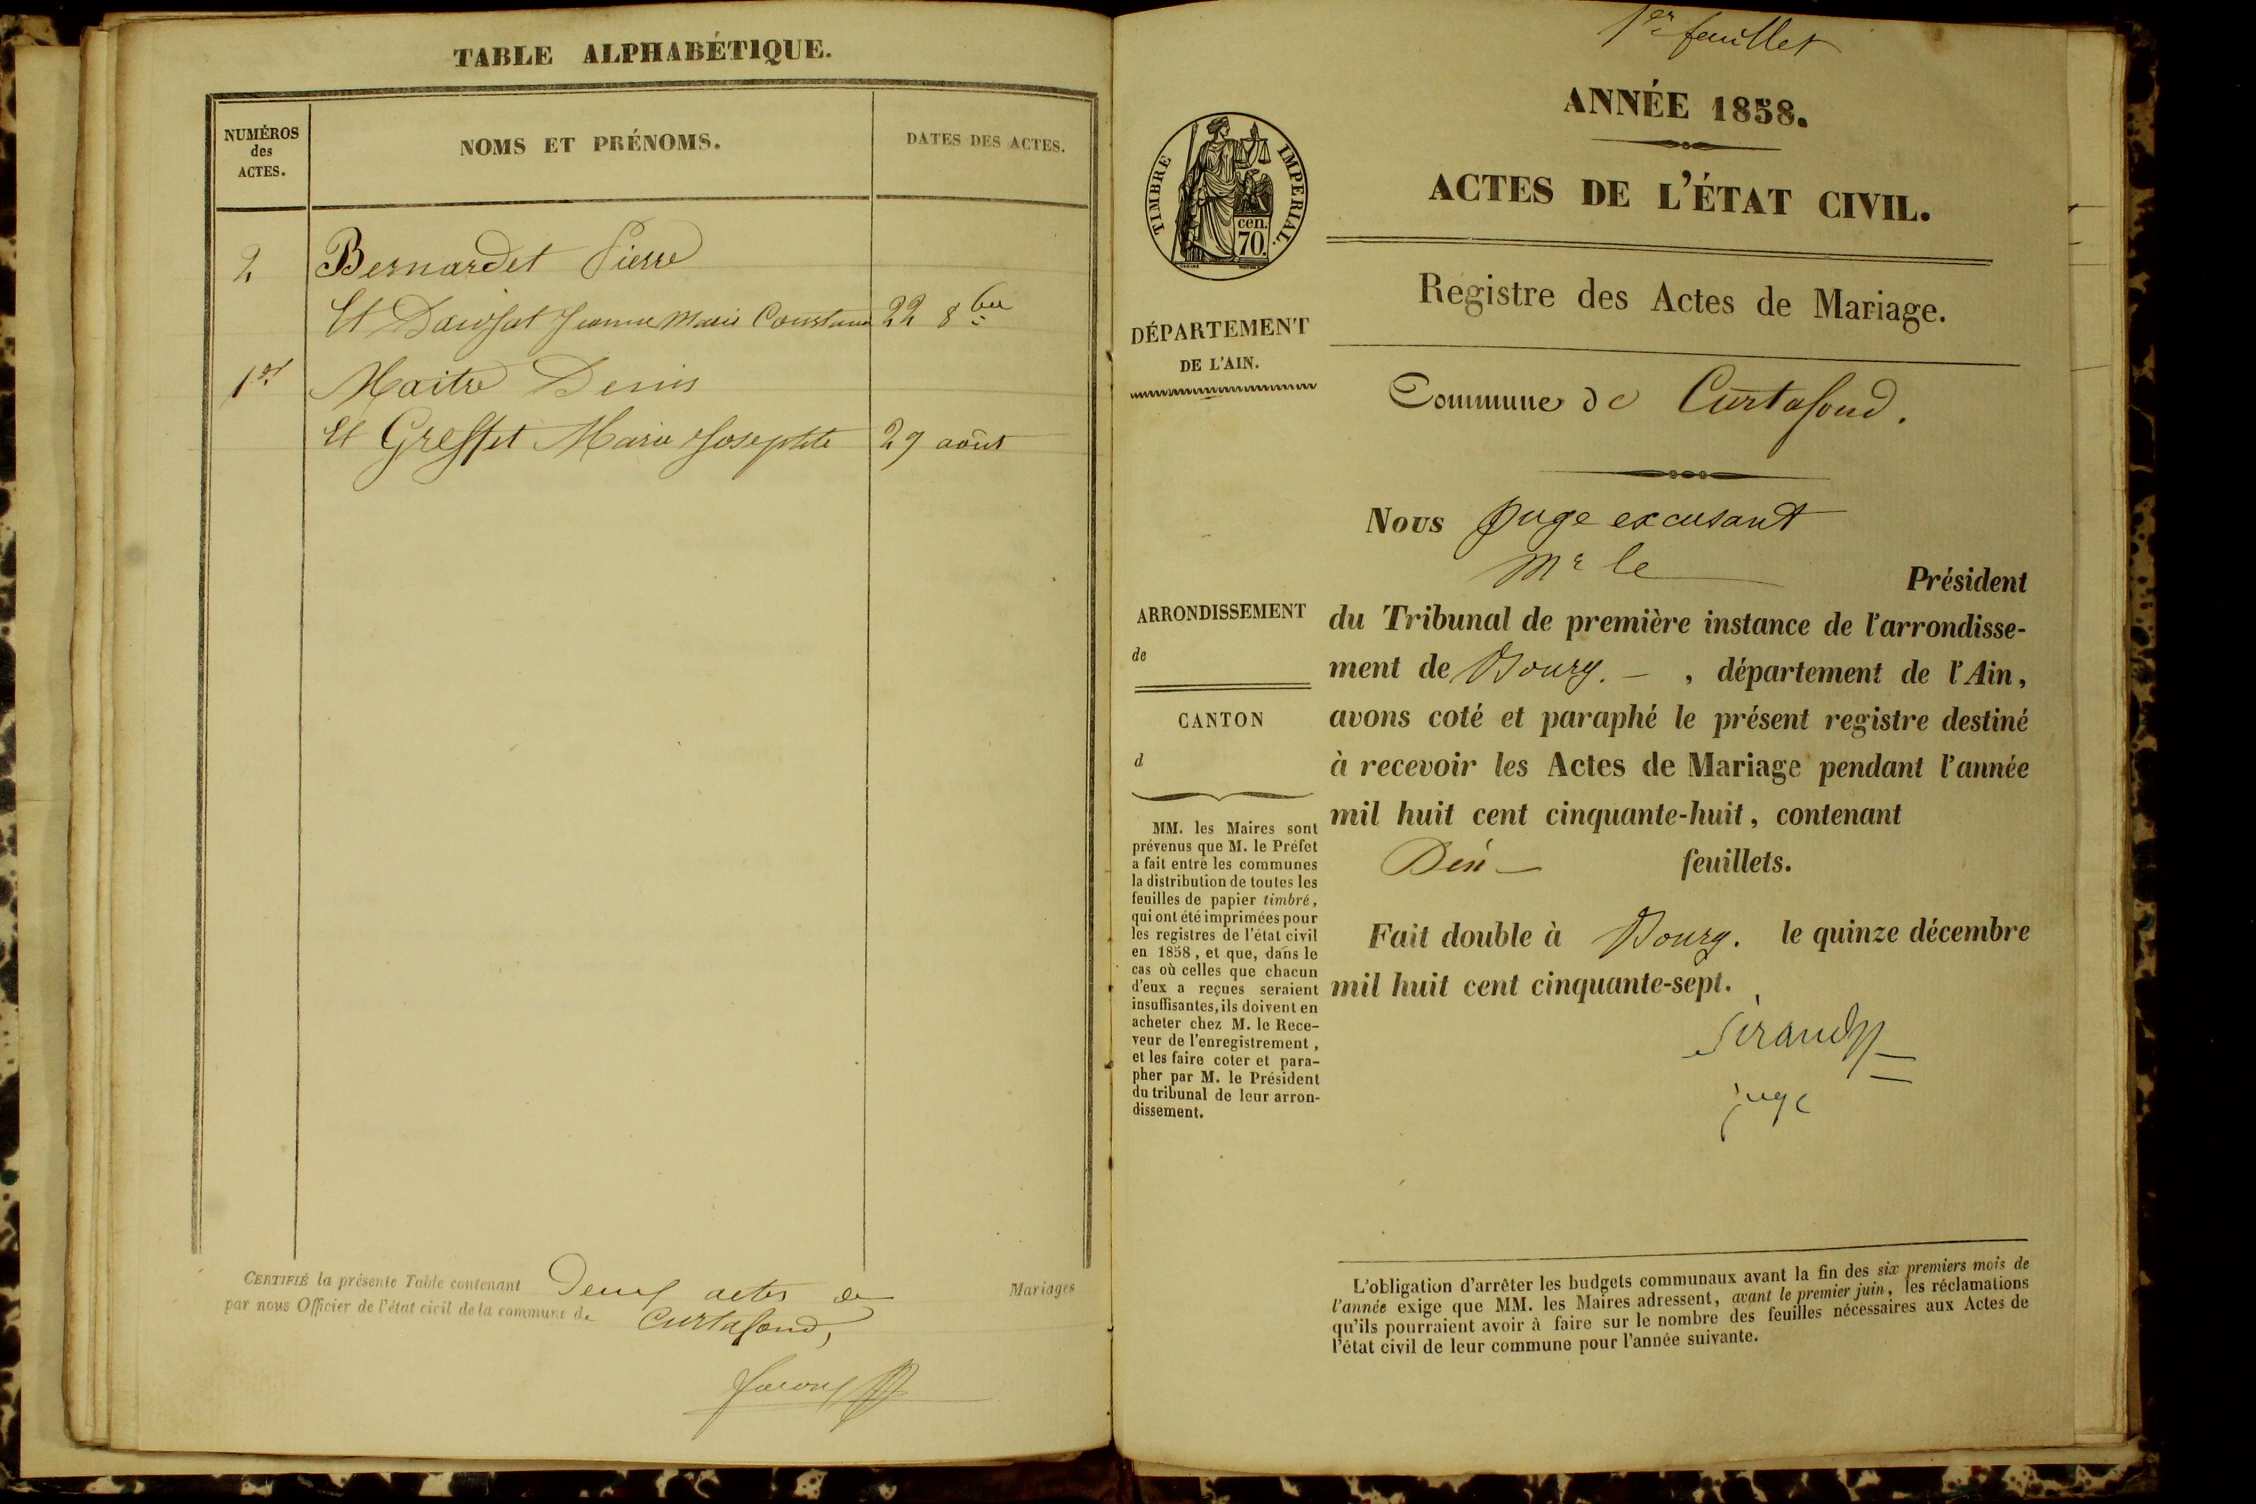 TABLE ALPHABÉTIQUE.
NUMÉROS
des
ACTES.
NOMS ET PRÉNOMS.
DATES DES ACTES.
2 Bernardet Pierre
Et Jeanne Marie 22 8bre
1er Maitre Denis
Et Greffet Marie Josephte 29 août
CERTIFIÉ la présente Table contenant Deux actes de Mariages
par nous Officier de l'état civil de la commune de Curtafond,
1er feuillet
ANNÉE 1858.
ACTES DE L'ÉTAT CIVIL.
TIMBRE IMPERIAL.
cen.
70.
Registre des Actes de Mariage.
DÉPARTEMENT
DE L'AIN.
Commune de Curtafond.
Nous Juge excusant
Mr le Président
du Tribunal de première instance de l'arrondisse-
ment de Bourg. — , département de l'Ain,
avons coté et paraphé le présent registre destiné
à recevoir les Actes de Mariage pendant l'année
mil huit cent cinquante-huit, contenant
Dix — feuillets.
Fait double à Bourg. le quinze décembre
mil huit cent cinquante-sept.
juge
ARRONDISSEMENT
de
CANTON
d
MM. les Maires sont
prévenus que M. le Préfet
a fait entre les communes
la distribution de toutes les
feuilles de papier timbré,
qui ont été imprimées pour
les registres de l'état civil
en 1858, et que, dans le
cas où celles que chacun
d'eux a reçues seraient
insuffisantes, ils doivent en
acheter chez M. le Rece-
veur de l'enregistrement,
et les faire coter et para-
pher par M. le Président
du tribunal de leur arron-
dissement.
L'obligation d'arrêter les budgets communaux avant la fin des six premiers mois de
l'année exige que MM. les Maires adressent, avant le premier juin, les réclamations
qu'ils pourraient avoir à faire sur le nombre des feuilles nécessaires aux Actes de
l'état civil de leur commune pour l'année suivante.